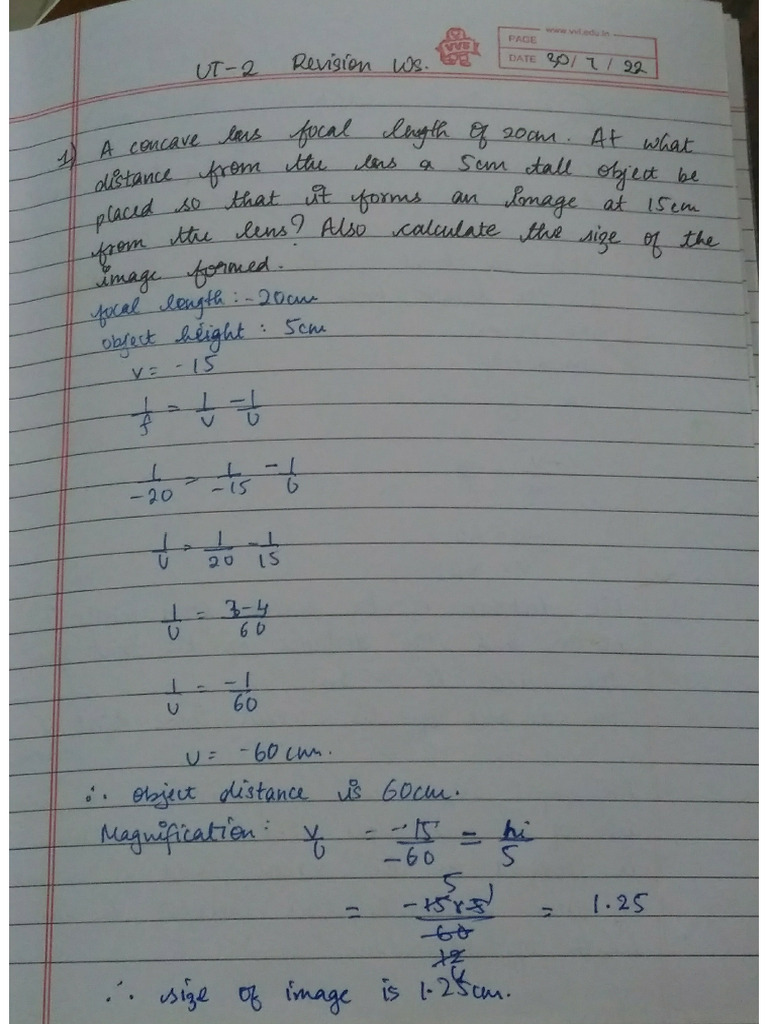 www.vvl.edu.in
VVS
PAGE
DATE 30/7/22
UT-2 Revision Ws.
1) A concave lens focal length of 20cm. At what
distance from the lens a 5cm tall object be
placed so that it forms an image at 15cm
from the lens? Also calculate the size of the
image formed.
focal length: -20cm
object height: 5cm
v = -15
1/f = 1/v - 1/u
1/-20 = 1/-15 - 1/u
1/u = 1/20 - 1/15
1/u = 3-4/60
1/u = -1/60
u = -60cm.
∴ object distance is 60cm.
Magnification: v/u = -15/-60 = hi/5
= -15×5/-60 = 1.25
∴ size of image is 1.25cm.